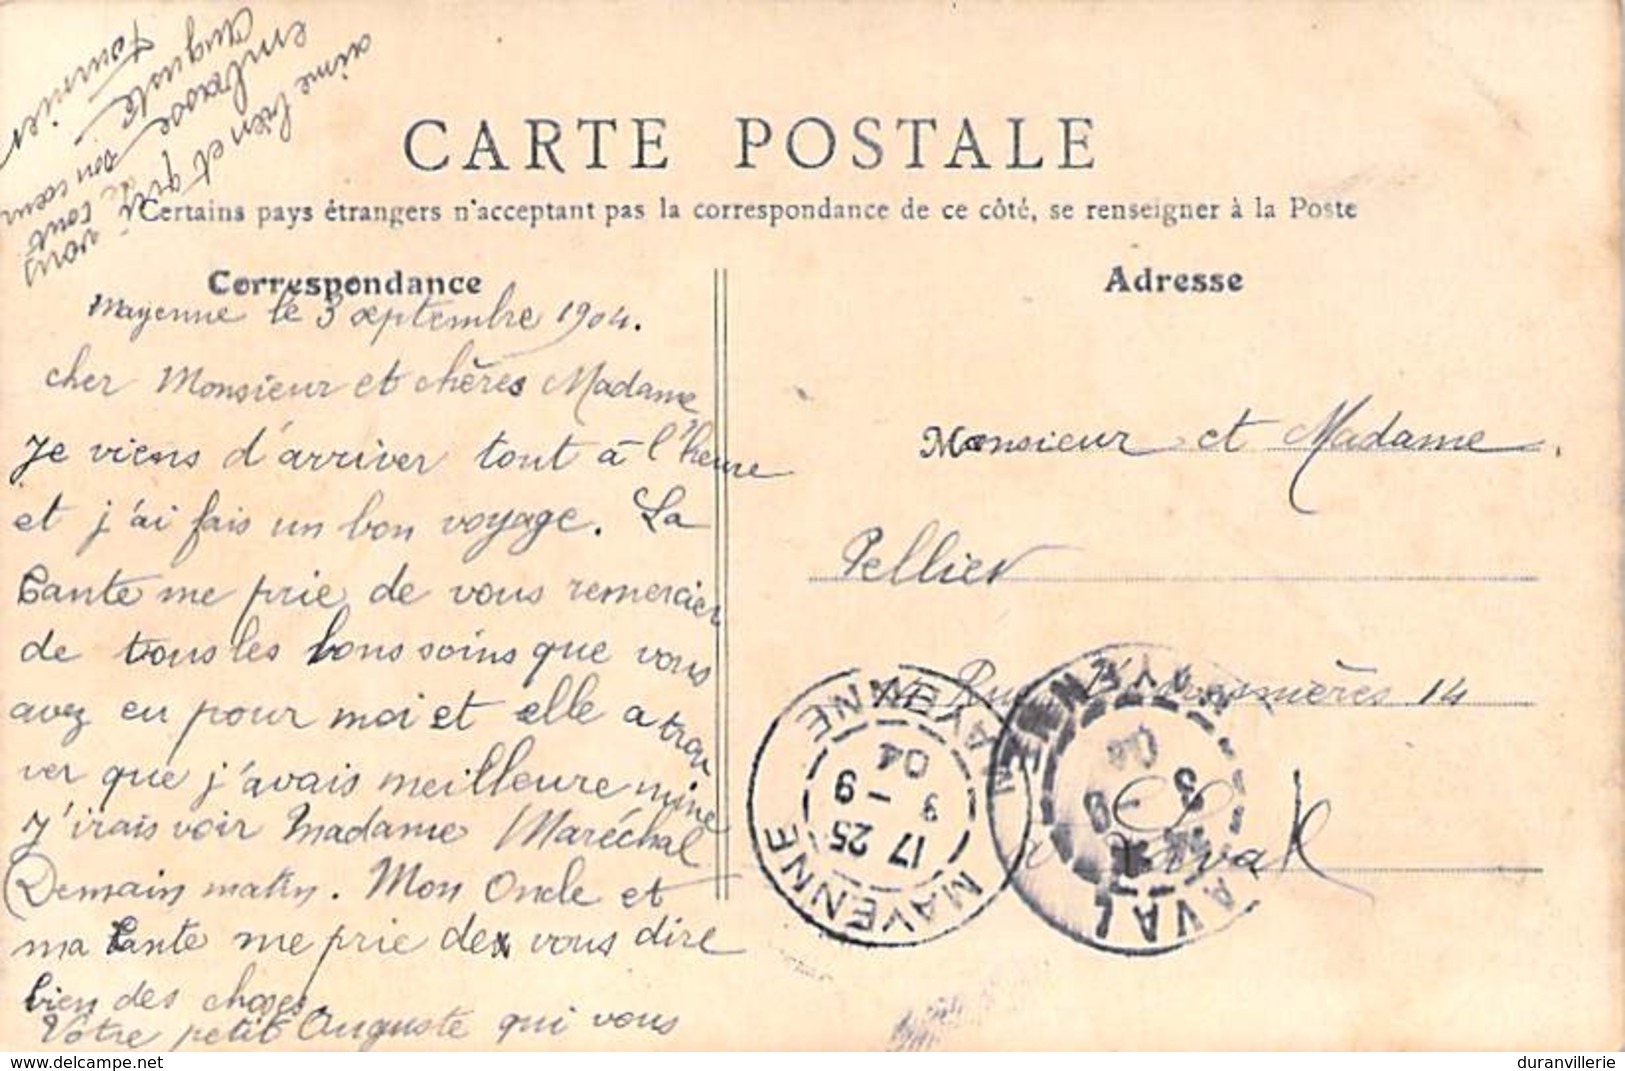 CARTE POSTALE
Certains pays étrangers n'acceptent pas la correspondance de ce côté, se renseigner à la Poste
Correspondance
Mayenne le 3 septembre 1904.
cher Monsieur et chères Madame
Je viens d'arriver tout à l'heure
et j'ai fais un bon voyage. La
Tante me prie de vous remercier
de tous les bons soins que vous
avez eu pour moi et elle a trou
ver que j'avais meilleure mine
J'irais voir Madame Maréchal
Demain matin. Mon Oncle et
ma Tante me prie de vous dire
bien des choses.
Votre petit Auguste qui vous
aime bien et qui vous
embrasse de tout
son cœur
Auguste
Tournier
Adresse
Monsieur et Madame
Pellier
Rue 14
Laval
MAYENNE
17 25
9 - 9
04
MAYENNE
LAVAL
3 - 9
04
MAYENNE
www.delcampe.net
duranvillerie